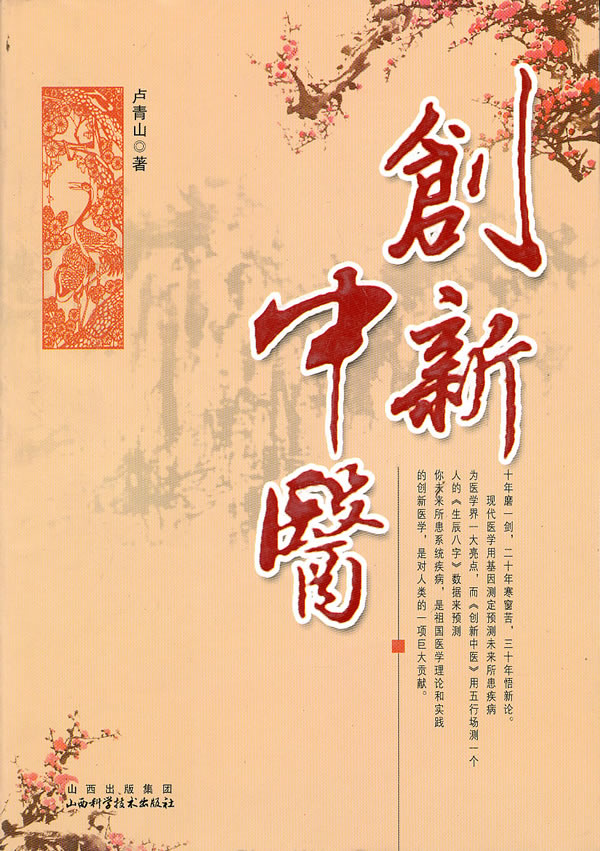 創新
中醫
卢青山◎著
十年磨一剑，二十年寒窗苦，三十年悟新论。
现代医学用基因测定预测未来所患疾病
为医学界一大亮点，而《创新中医》用五行场测一个
人的《生辰八字》数据来预测
你未来所患系统疾病，是祖国医学理论和实践
的创新医学，是对人类的一项巨大贡献。
山西出版集团
山西科学技术出版社